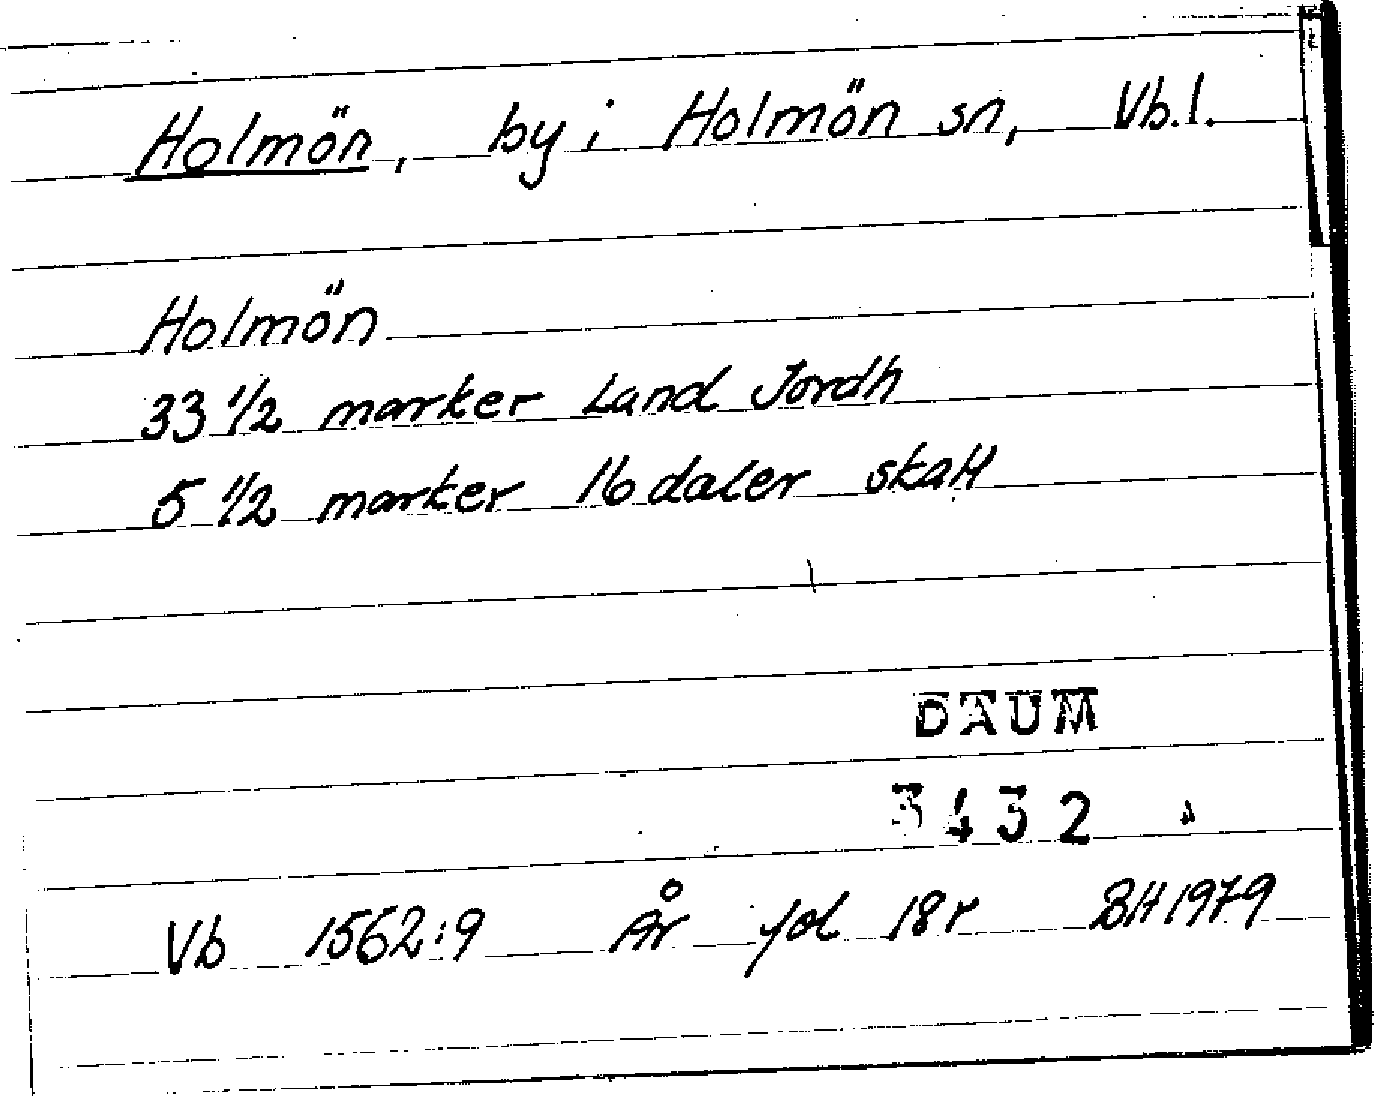 Holmön, by i Holmön sn, Vb.l.
Holmön
33 1/2 marker Land Jordh
5 1/2 marker 16 daler skatt
DAUM
3432
Vb 1562:9 År fol 18r BH 1979